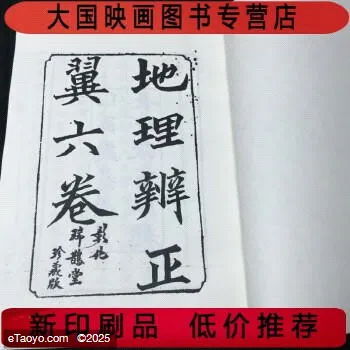 大国映画图书专营店
地理辨正
翼六卷
彰化
珍藏版
新印刷品 低价推荐
eTaoyo.com ©2025